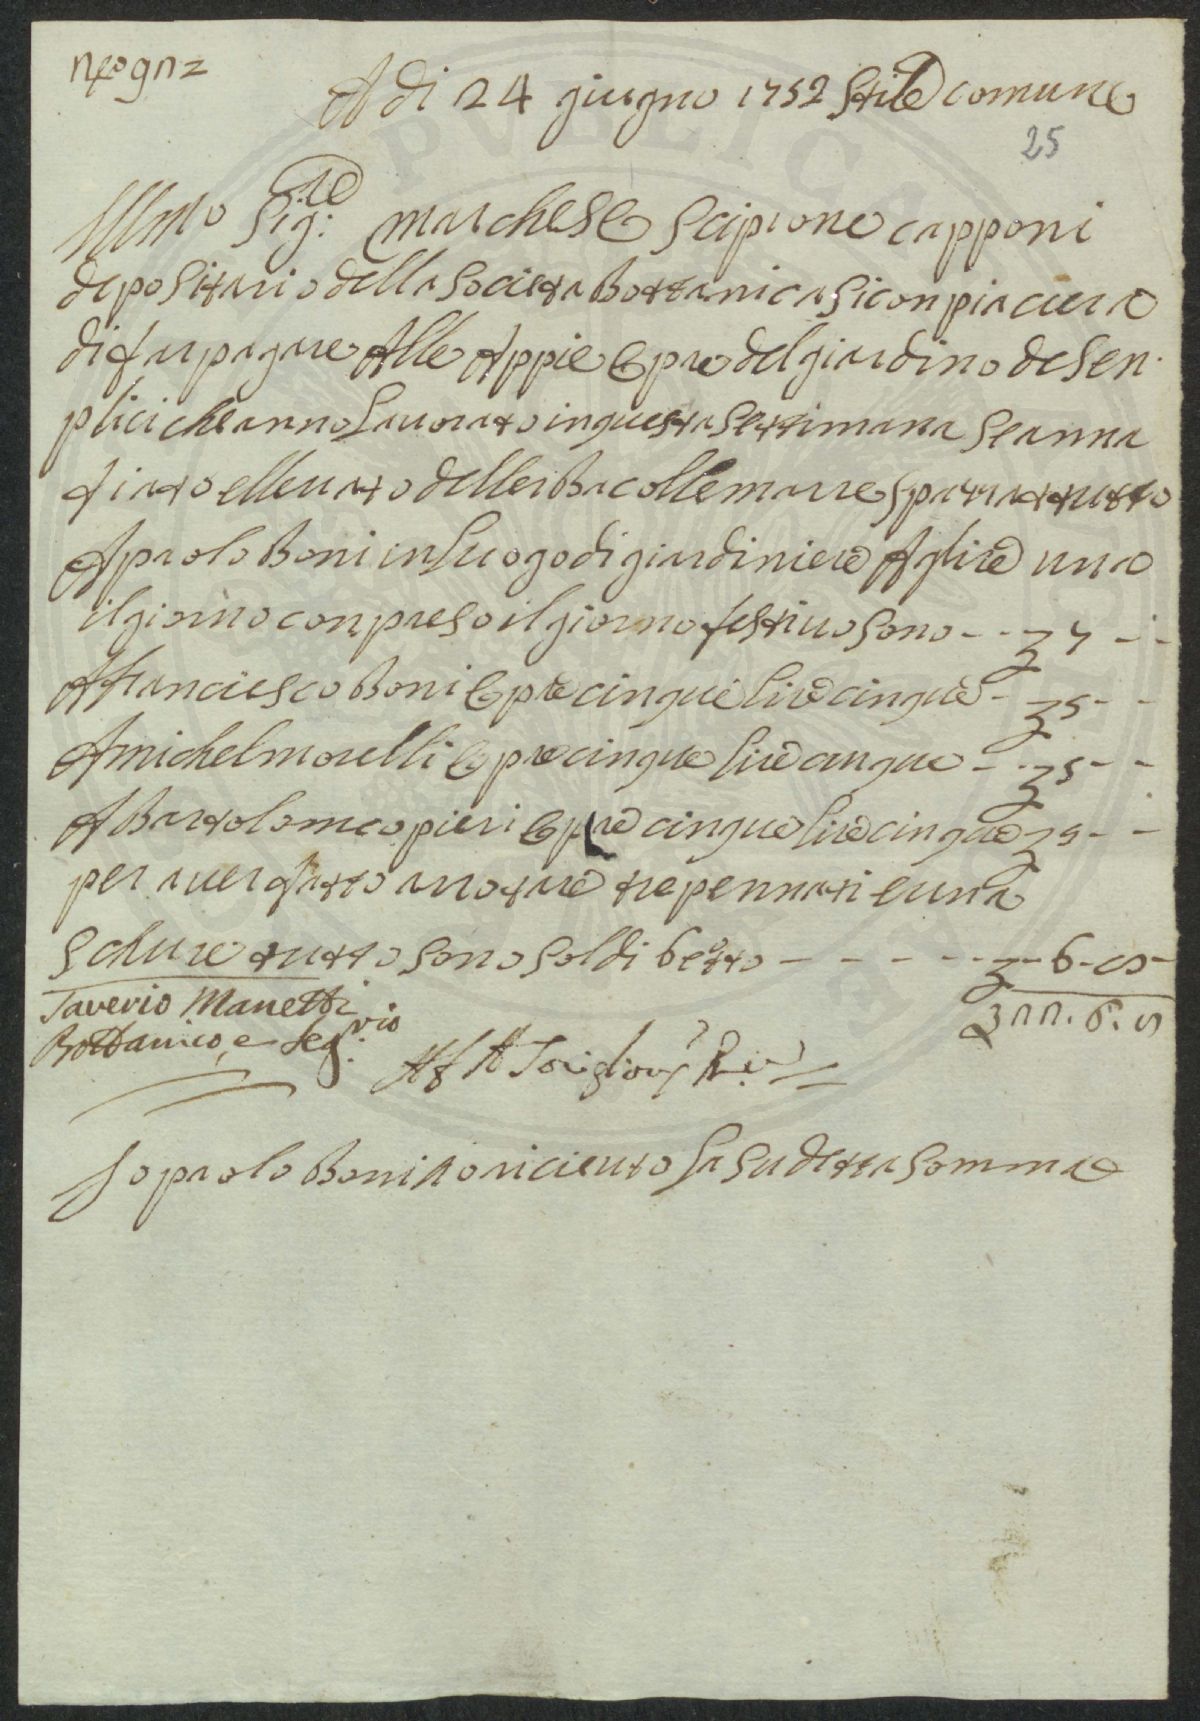 A di 24 giugno 1752 Stile comune
25
Illmo Sigre: Marchese Scipione capponi
depositario della Società Bottanica si conpiacera
di far pagare Alle Appie Opre del giardino de sen
plici che anno Lavorato in questa settimana se anna
fiato e llevato delle erba colle marre
A paolo Boni in Luogo di giardiniere A lire una
il giorno conpreso il giorno festivo sono - - 7 - -
A francesco Boni Opre cinque lire cinque - 5 - -
A michel morelli Opre cinque lire cinque - - 5 - -
A Bartolomeo pieri Opre cinque lire cinque 5 - -
per aver fatto arotare tre pennati e una
schure tutto sono soldi 6 e otto - - - - - - 6 - 8 -
22. 6. 8
Saverio Manetti
Bottanico, e Segrio
Io paolo Boni o riceuto La Sudetta Somma